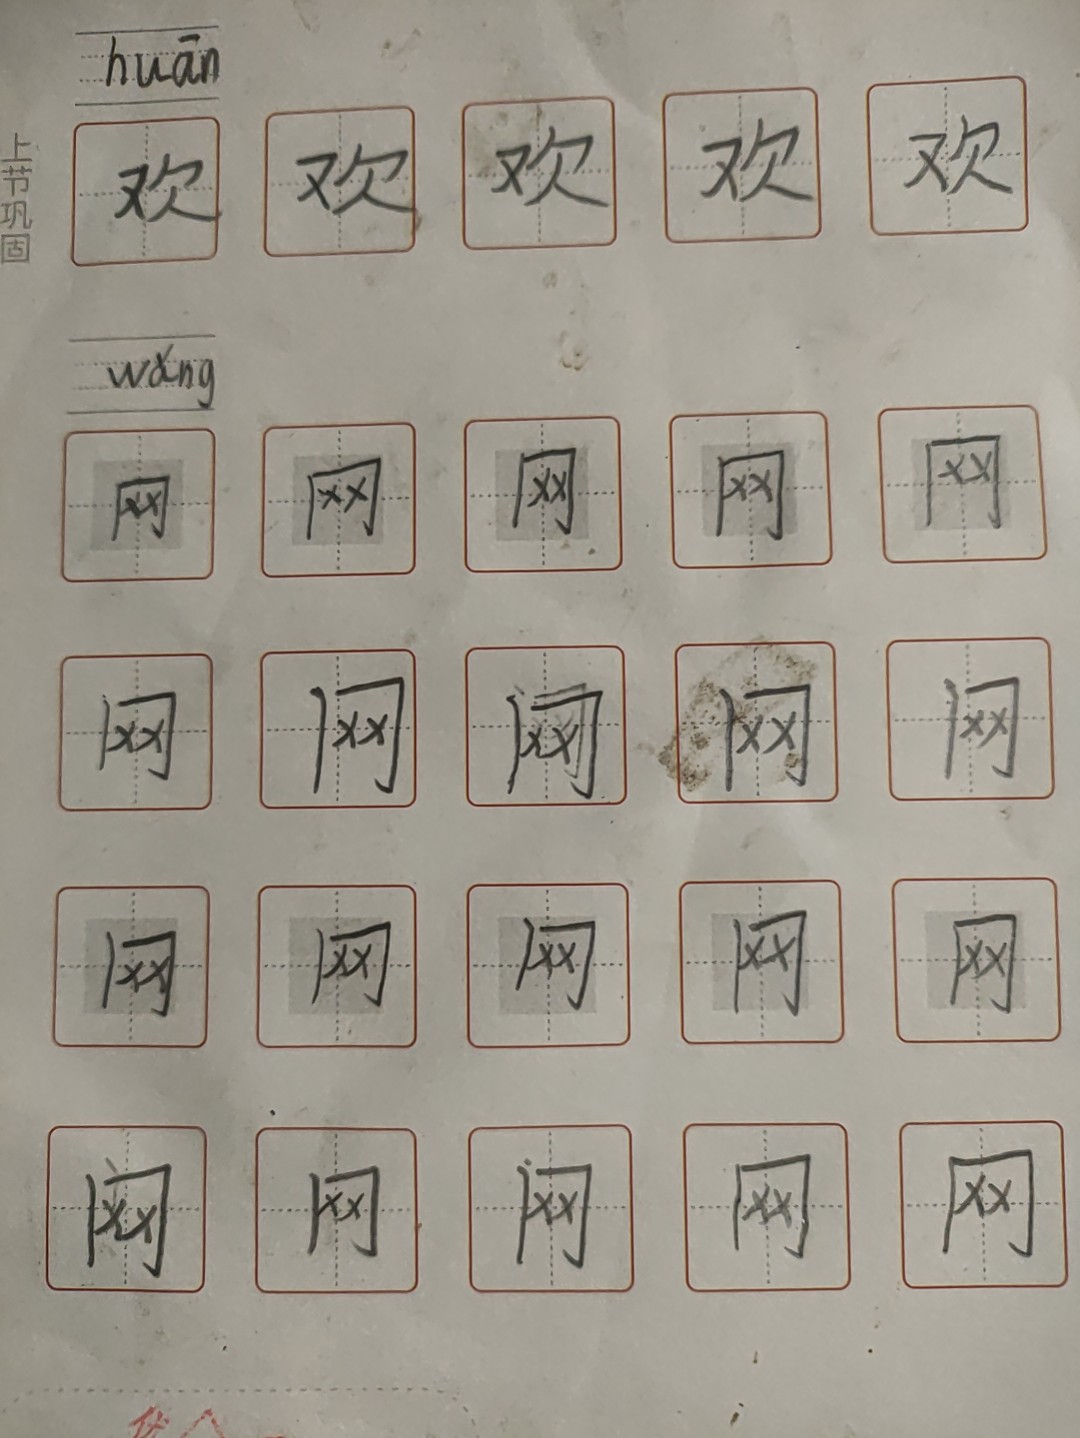 huān
上节巩固
欢 欢 欢 欢 欢
wǎng
网 网 网 网 网
网 网 网 网 网
网 网 网 网 网
网 网 网 网 网